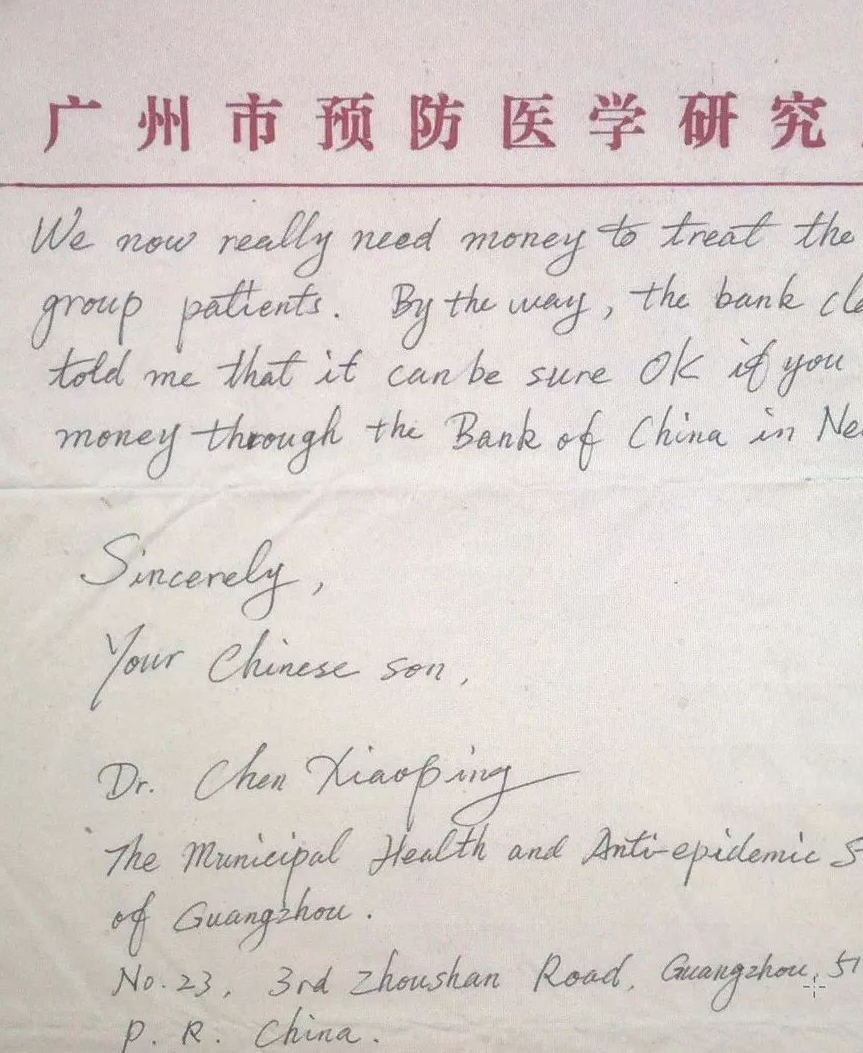 广州市预防医学研究
We now really need money to treat the
group patients. By the way, the bank
told me that it can be sure OK if you
money through the Bank of China in
Sincerely,
Your Chinese son,
Dr. Chen Xiaoping
The Municipal Health and Anti-epidemic
of Guangzhou.
No. 23, 3rd Zhoushan Road, Guangzhou, 51
P. R. China.